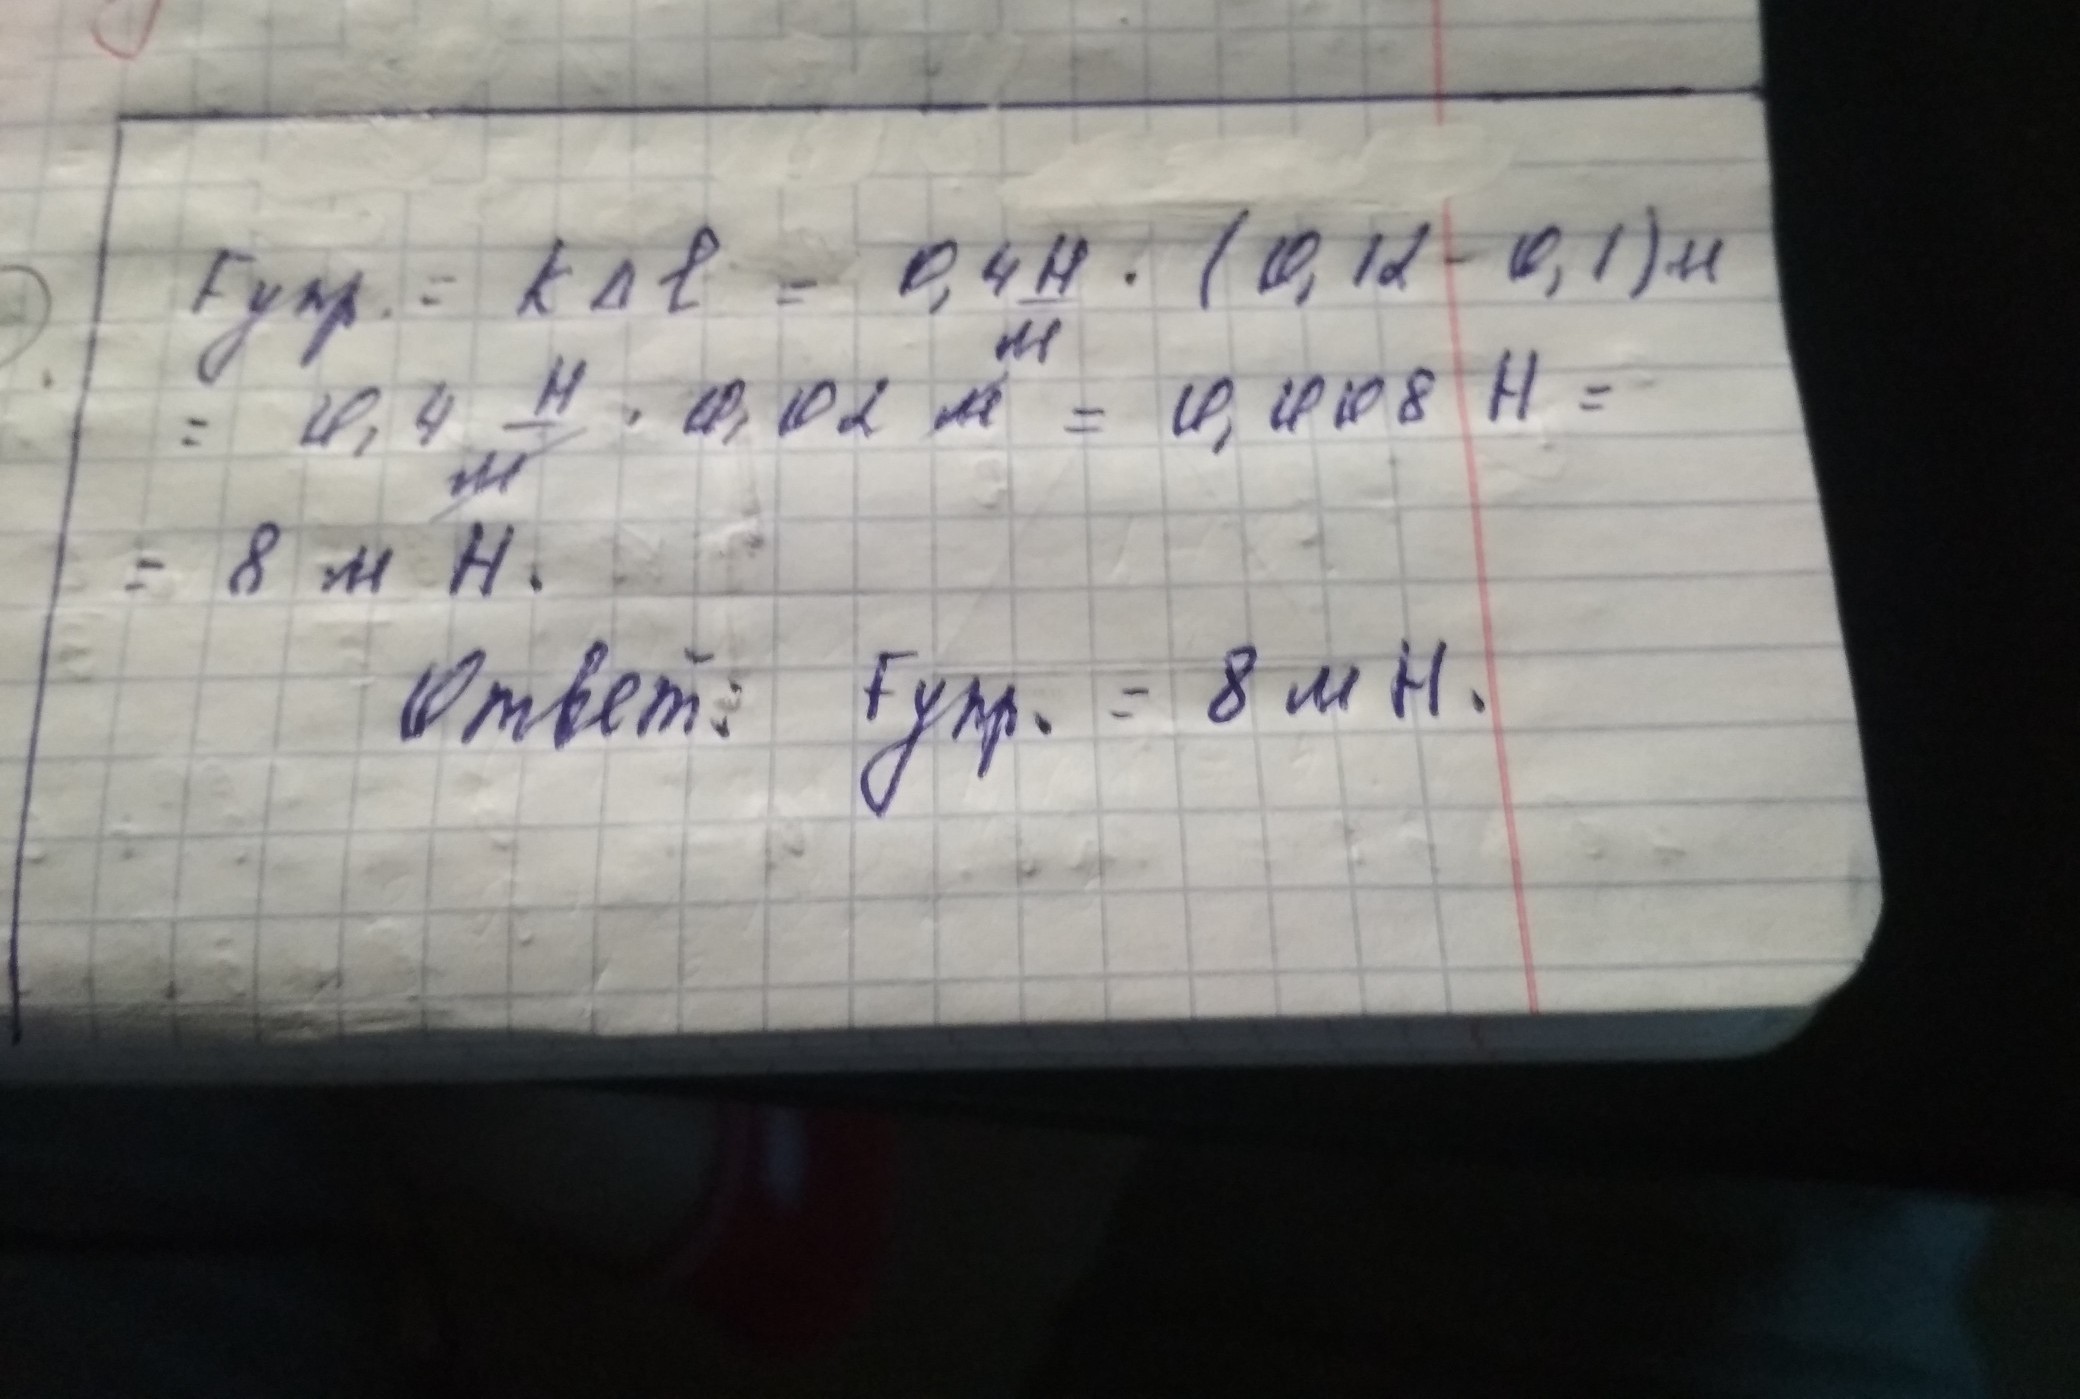 Fупр. = kΔl = 0,4 Н/м · (0,12 - 0,1)м
= 0,4 Н/м · 0,02 м = 0,008 Н =
= 8 м Н.
Ответ: Fупр. = 8 м Н.